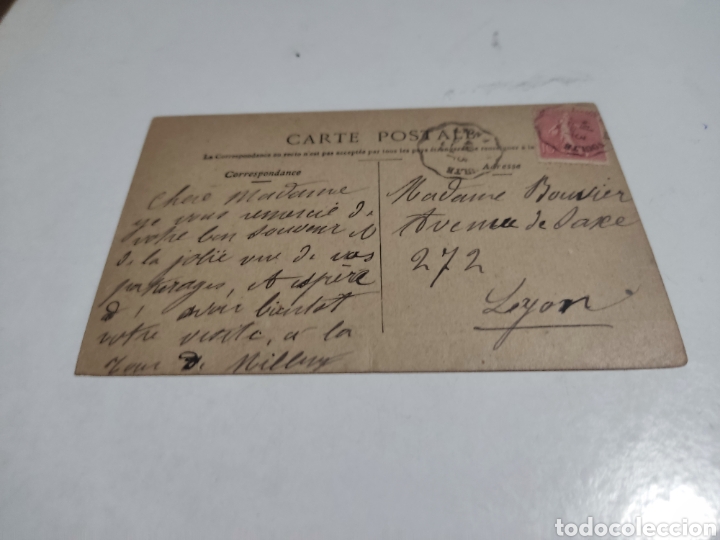 CARTE POSTALE
La Correspondance au recto n'est pas acceptée par tous les pays étrangers
Correspondance
Adresse
Chère Madame
je vous remercie de
votre bon souvenir &
de la jolie vue de vos
parages, & espère
d'avoir bientôt
votre visite, à la
Tour de Millery
Madame Bouvier
Avenue de Saxe
272
Lyon
todocoleccion